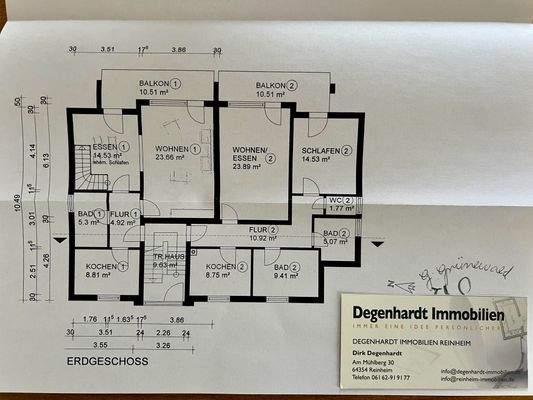 30 3.51 17⁵ 3.86 30
BALKON 1
10.51 m²
BALKON 2
10.51 m²
ESSEN 1
14.53 m²
ehem. Schlafen
WOHNEN 1
23.66 m²
WOHNEN/
ESSEN 2
23.89 m²
SCHLAFEN 2
14.53 m²
WC 2
1.77 m²
BAD 1
5.3 m²
FLUR 1
4.92 m²
FLUR 2
10.92 m²
BAD 2
5.07 m²
TR.HAUS
9.63 m²
KOCHEN 1
8.81 m²
KOCHEN 2
8.75 m²
BAD 2
9.41 m²
50
30
4.14
6.13
10.49
11⁵
3.01
24
2.51
4.26
30
1.76 11⁵ 1.63⁵ 17⁵ 3.86
30 3.51 24 2.26 24
3.55 3.26
ERDGESCHOSS
Degenhardt Immobilien
IMMER EINE IDEE PERSÖNLICHER
DEGENHARDT IMMOBILIEN REINHEIM
Dirk Degenhardt
Am Mühlberg 30
64354 Reinheim
Telefon 06162-919177
info@degenhardt-immobilien.de
info@reinheim-immobilien.de